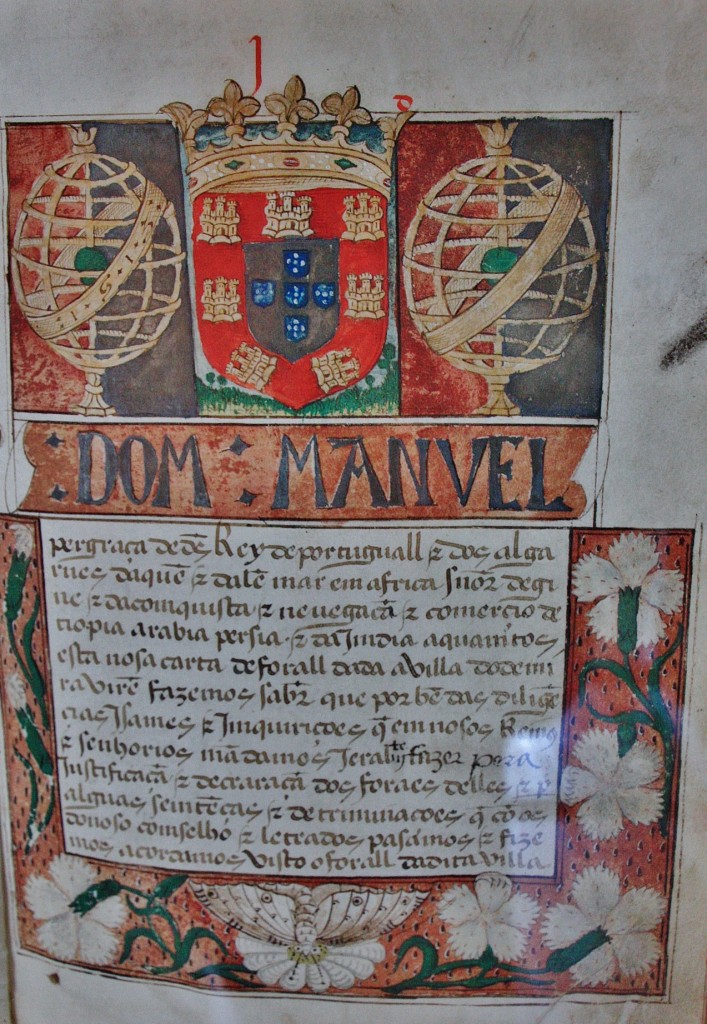 DOM MANVEL
per graça de ds Rey de portuguall & dos alga
rues daque & dale mar em africa snor de gi
ne & da comquista & neuegaçã & comercio de
tiopia arabia persia & da Jmdia a quamtos
esta nosa carta de forall dada a villa dode mi
ra virē fazemos sabr que por bē das diligē
cias Jsames & Jmquirições q̃ em nosos Reinos
& senhorios mãdamos fazer pera
Justificaçã & decraraçã dos foraes delles & p
algūas semtēças & detriminações q̃ cō os
do noso comselho & letrados pasamos & fize
mos acordamos visto o forall da dita villa